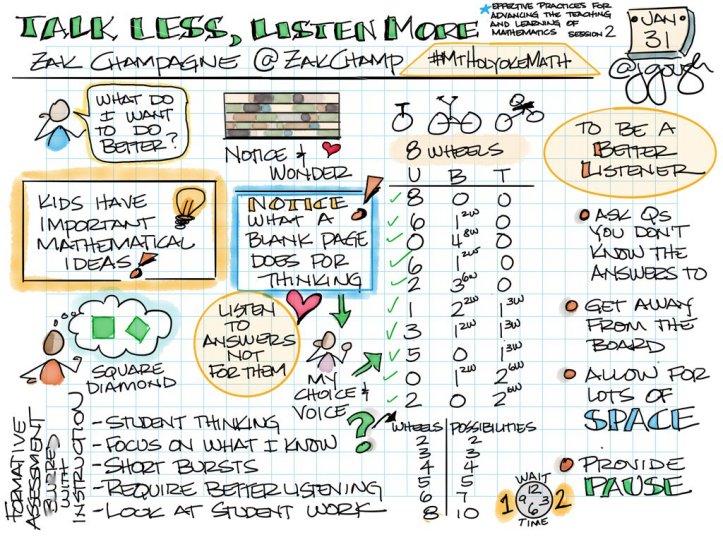 TALK LESS, LISTEN MORE
EFFECTIVE PRACTICES FOR
ADVANCING THE TEACHING
AND LEARNING OF
MATHEMATICS SESSION 2
JAN
31
ZAK CHAMPAGNE @ZAKCHAMP
#MTHOLYOKEMATH
@jgough
WHAT DO
I WANT
TO DO
BETTER?
NOTICE &
WONDER
KIDS HAVE
IMPORTANT
MATHEMATICAL
IDEAS!
NOTICE
WHAT A
BLANK PAGE
DOES FOR
THINKING
SQUARE
DIAMOND
LISTEN
TO
ANSWERS
NOT
FOR THEM
MY
CHOICE &
VOICE
8 WHEELS
U B T
8 0 0
6 1 2W 0
0 4 8W 0
6 1 2W 0
2 3 6W 0
1 2 2W 1 3W
3 1 2W 1 3W
5 0 1 3W
0 1 2W 2 6W
2 0 2 6W
?
WHEELS POSSIBILITIES
2 2
3 3
4 4
5 5
6 7
8 10
TO BE A
BETTER
LISTENER
ASK QS
YOU DON'T
KNOW THE
ANSWERS TO
GET AWAY
FROM THE
BOARD
ALLOW FOR
LOTS OF
SPACE
PROVIDE
PAUSE
WAIT
1 12 3 6 9 2
TIME
FORMATIVE
ASSESSMENT
BLURRED
WITH
INSTRUCTION
- STUDENT THINKING
- FOCUS ON WHAT I KNOW
- SHORT BURSTS
- REQUIRE BETTER LISTENING
- LOOK AT STUDENT WORK